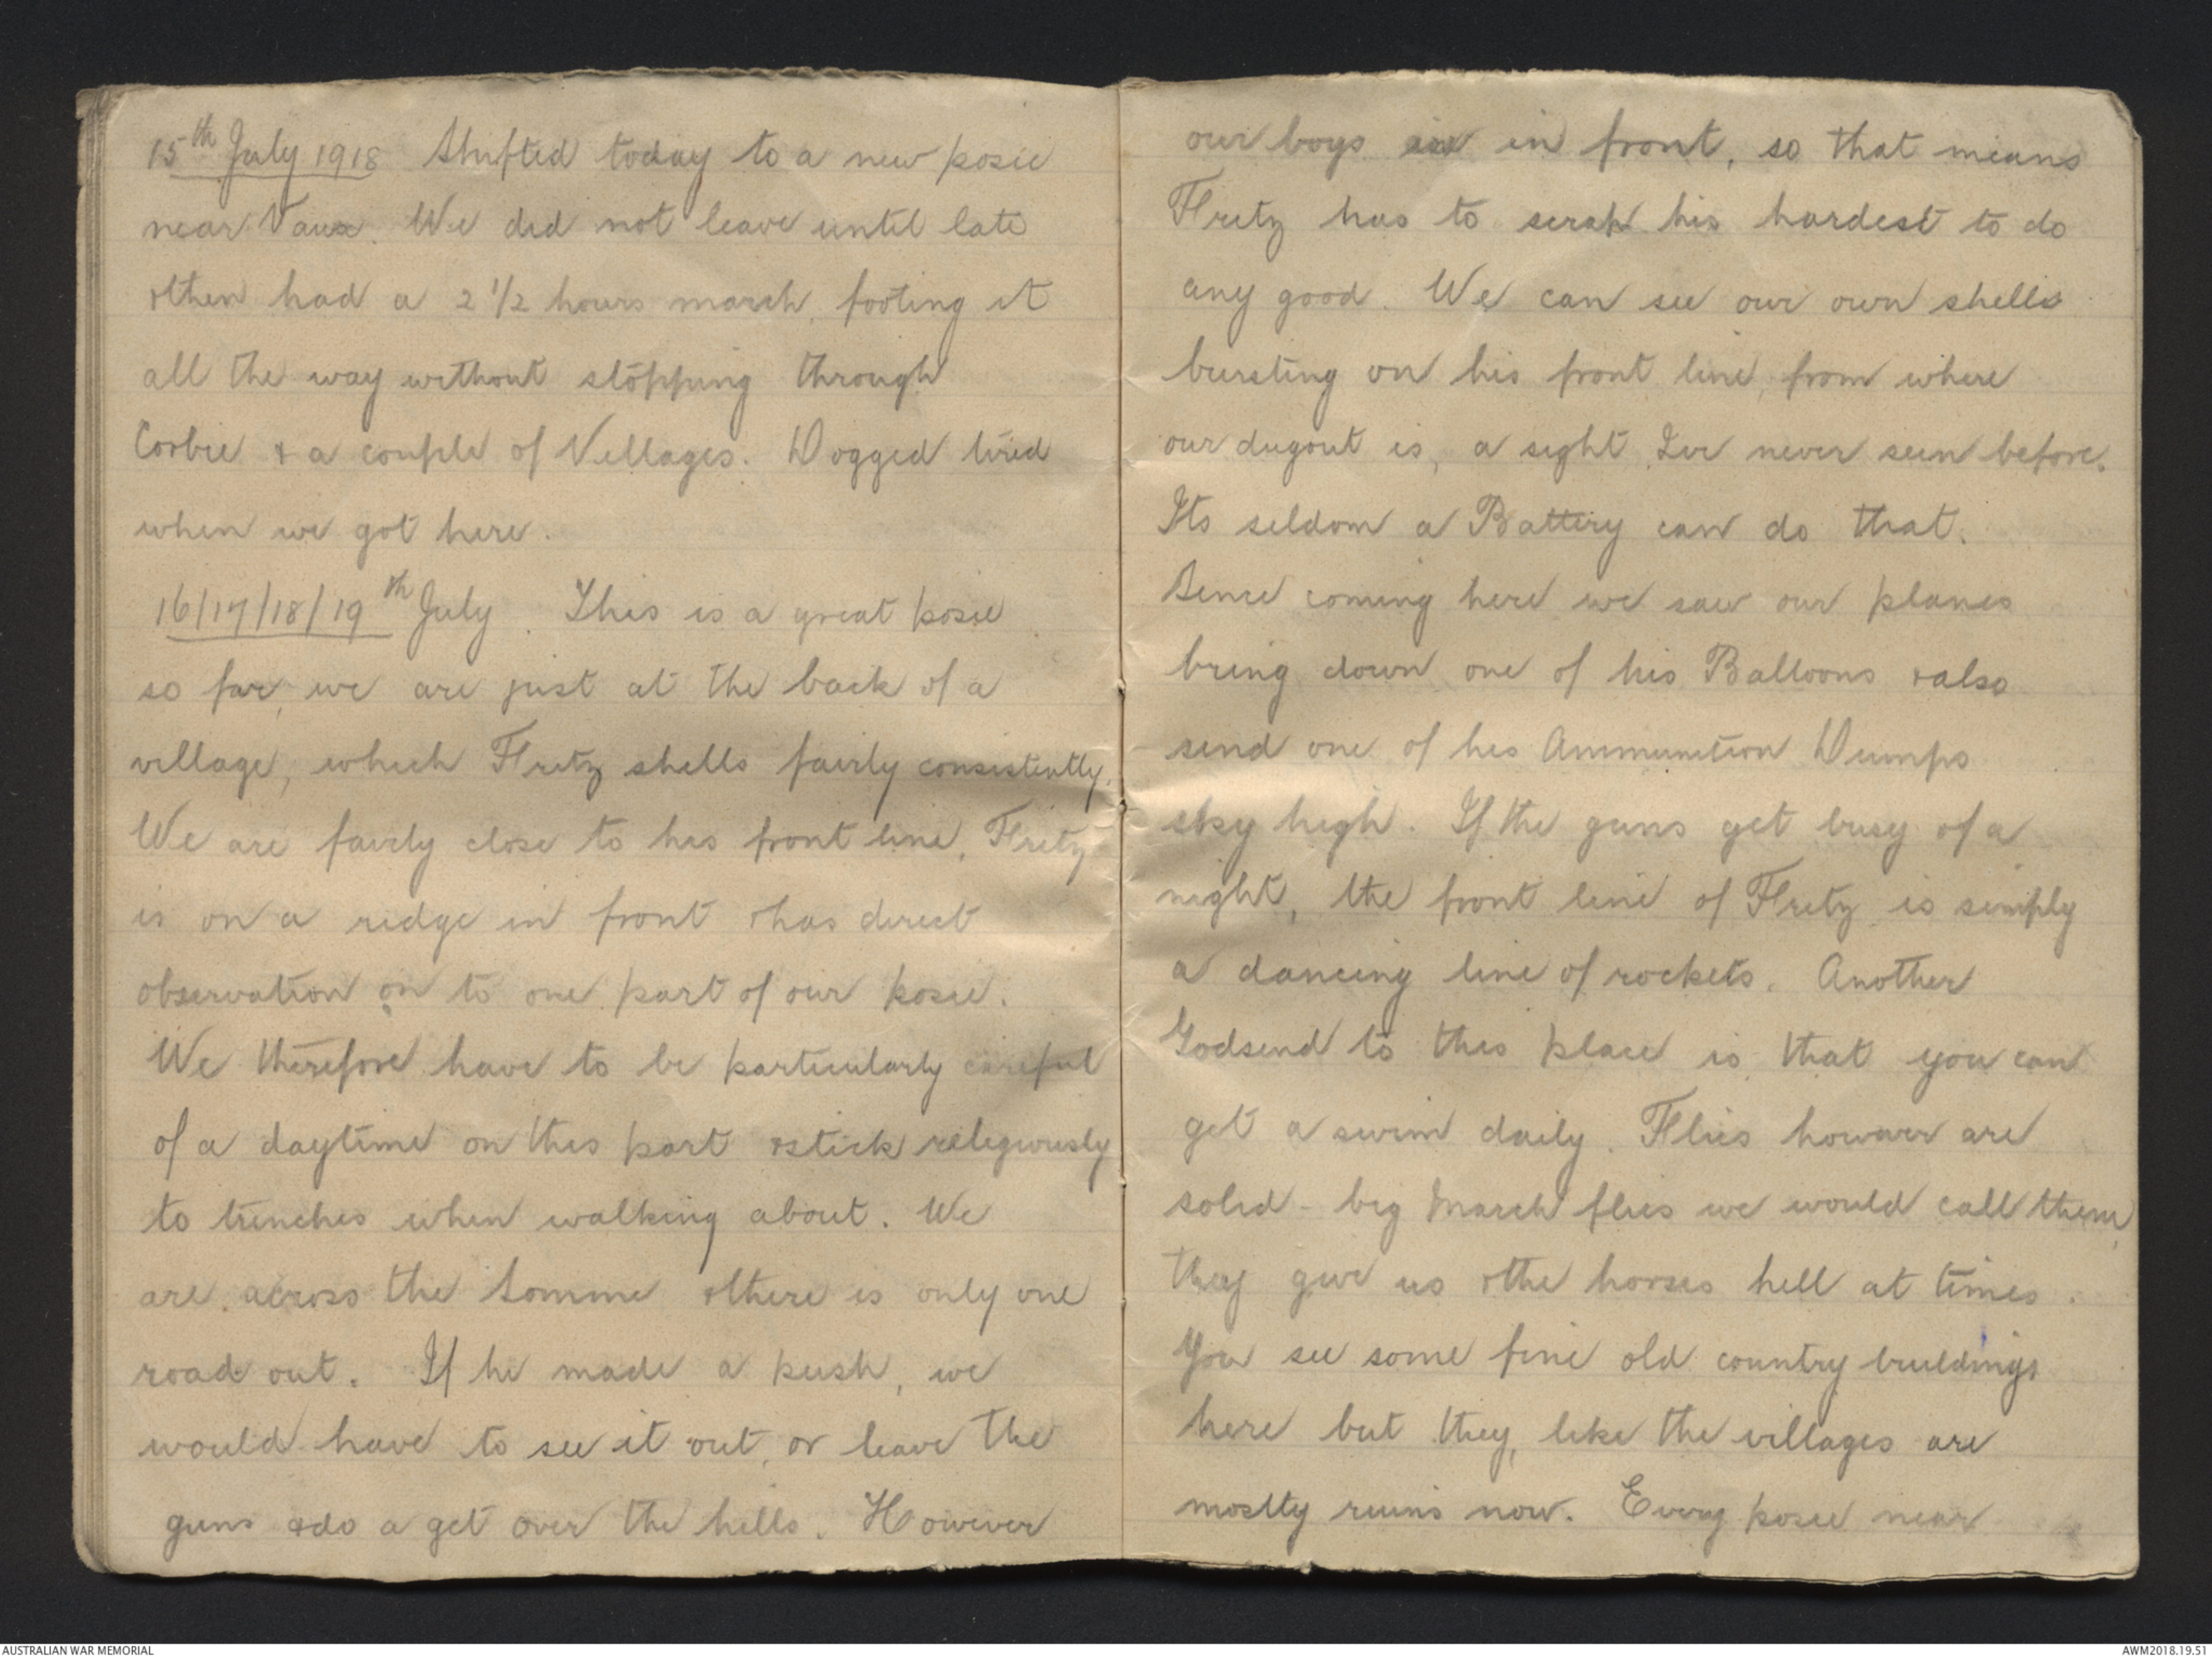 15th July 1918 Shifted today to a new posie
near Vaux. We did not leave until late
& then had a 2 1/2 hours march, footing it
all the way without stopping through
Corbie & a couple of Villages. Dogged tired
when we got here.
16/17/18/19th July. This is a great posie
so far, we are just at the back of a
village, which Fritz shells fairly consistently.
We are fairly close to his front line, Fritz
is on a ridge in front & has direct
observation on to one part of our posie.
We therefore have to be particularly careful
of a daytime on this part & stick religiously
to trenches when walking about. We
are across the Somme & there is only one
road out. If he made a push, we
would have to see it out, or leave the
guns & do a get over the hills. However
our boys in front, so that means
Fritz has to scrap his hardest to do
any good. We can see our own shells
bursting on his front line, from where
our dugout is, a sight Ive never seen before.
Its seldom a Battery can do that.
Since coming here we saw our planes
bring down one of his Balloons & also
send one of his Ammunition Dumps
sky high. If the guns get busy of a
night, the front line of Fritz is simply
a dancing line of rockets. Another
Godsend to this place is that you can
get a swim daily. Flies however are
solid - big March flies we would call them,
they give us & the horses hell at times.
You see some fine old country buildings
here but they, like the villages are
mostly ruins now. Every posie near
AUSTRALIAN WAR MEMORIAL
AWM2018.19.51